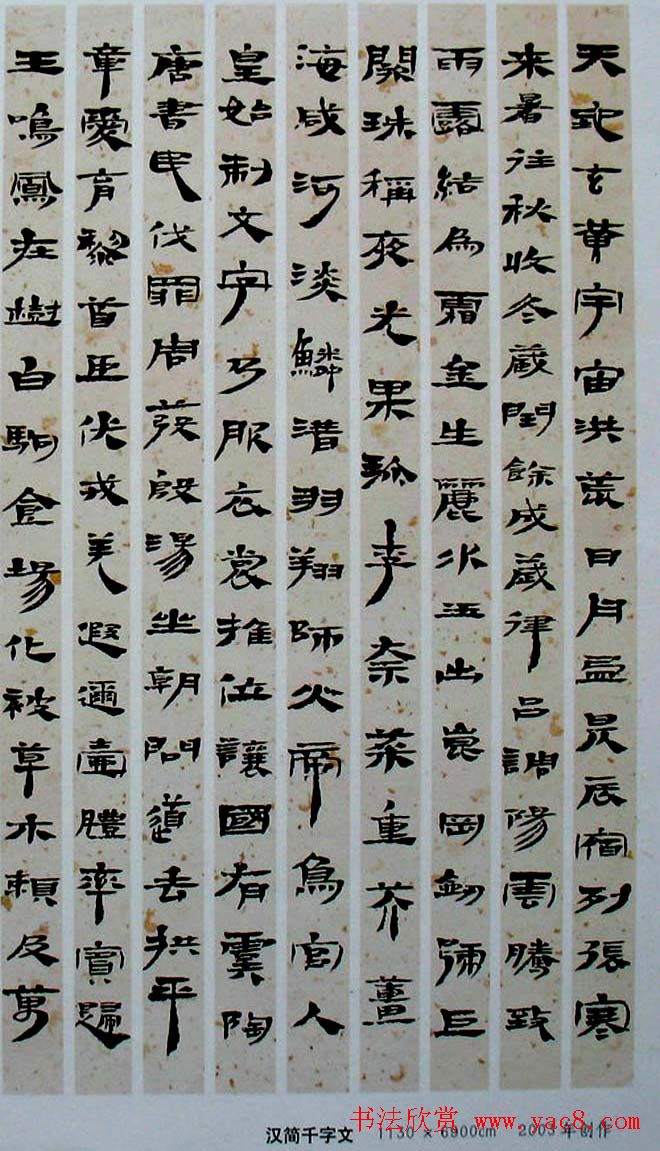 天地玄黄宇宙洪荒日月盈昃辰宿列張寒
来暑往秋收冬藏閏餘成歲律吕調陽雲騰致
雨露結為霜金生麗水玉出崑岡劍號巨
闕珠稱夜光果珍李柰菜重芥薑
海咸河淡鱗潛羽翔師火帝鳥官人
皇始制文字乃服衣裳推位讓國有虞陶
唐書民伐罪周發殷湯坐朝問道垂拱平
章愛育黎首臣伏戎羌遐邇壹體率賓歸
王鳴鳳在樹白駒食場化被草木賴及萬
汉简千字文 1130 × 6900cm 2003年创作
书法欣赏 www.yac8.com